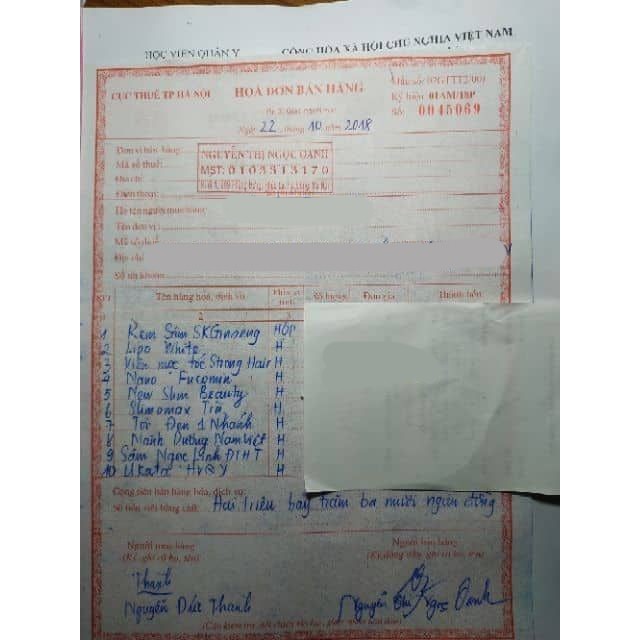 HỌC VIỆN QUÂN Y
CỘNG HÒA XÃ HỘI CHỦ NGHĨA VIỆT NAM
CỤC THUẾ TP HÀ NỘI
HOÁ ĐƠN BÁN HÀNG
Mẫu số: 02GTTT2/001
Ký hiệu: 01AM/18P
Số: 0045069
Ngày 22 tháng 10 năm 2018
Đơn vị bán hàng:
Mã số thuế:
Địa chỉ:
Điện thoại:
NGUYỄN THỊ NGỌC OANH
MST: 0103313170
Họ tên người mua hàng
Tên đơn vị:
Mã số thuế
Địa chỉ
Số tài khoản
STT
Tên hàng hoá, dịch vụ
Đơn vị tính
Số lượng
Đơn giá
Thành tiền
2
3
1 Kem Sâm SKGinseng HỘP
2 Lipo White H
3 Viên mọc tóc Strong Hair H
4 Nano Fucomin H
5 New Slim Beauty H
6 Slimomax Tia H
7 Tỏi Đen 1 Nhánh H
8 Mãnh Dương Nam Việt H
9 Sâm Ngọc Linh ĐTHT H
10 HVQY H
Cộng tiền bán hàng hóa, dịch vụ:
Số tiền viết bằng chữ: Hai triệu bảy trăm ba mươi ngàn đồng
Người mua hàng
(Ký, ghi rõ họ, tên)
Người bán hàng
(Ký, đóng dấu, ghi rõ họ, tên)
Thanh
Nguyễn Đức Thanh
Nguyễn Thị Ngọc Oanh